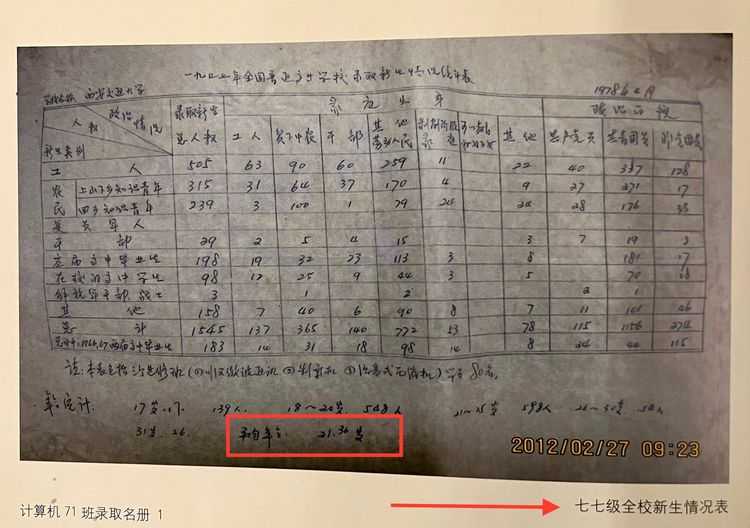 一九七七年全国普通高等学校录取新生情况统计表
学校名称 西安交通大学 1978 6 19
政治情况 人数 新生类别 录取新生总人数 家庭出身 政治面貌
工人 贫下中农 干部 其他劳动人民 其他 共产党员 共青团员 非党团员
工人 505 63 90 60 259 11 22 40 337 128
农民 上山下乡知识青年 315 31 64 37 170 4 9 27 271 17
回乡知识青年 239 3 100 1 79 24 24 28 176 35
复员军人
干部 29 2 5 4 15 3 7 19 3
应届高中毕业生 198 19 32 23 113 3 8 181 17
在校的高中学生 98 12 25 9 44 3 5 70 28
解放军干部、战士 3 1 2 2 1
其他 158 7 40 6 90 8 7 11 101 46
总计 1545 137 365 140 772 53 78 115 1156 274
总计中:1966,67两届高中毕业生 183 14 31 18 98 14 8 24 44 115
注:本表包括
80名。
年令统计 17岁 139人 18~20岁 548人 21~25岁 598人 26~30岁
31岁 26 平均年令: 21.36岁
2012/02/27 09:23
计算机 71 班录取名册 1 七七级全校新生情况表